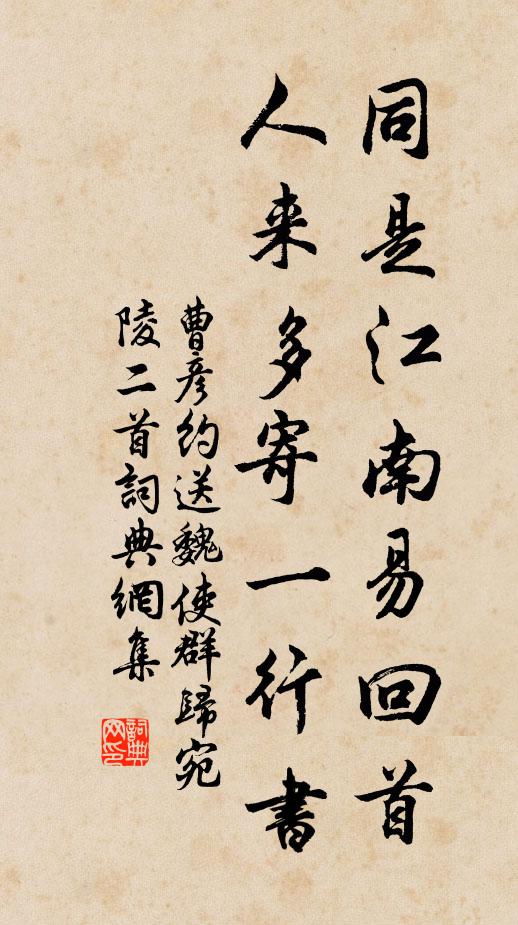 同是江南易回首
人来多寄一行書
曹彦約送魏使群歸宛
陵二首詞典網集
詞典
网印